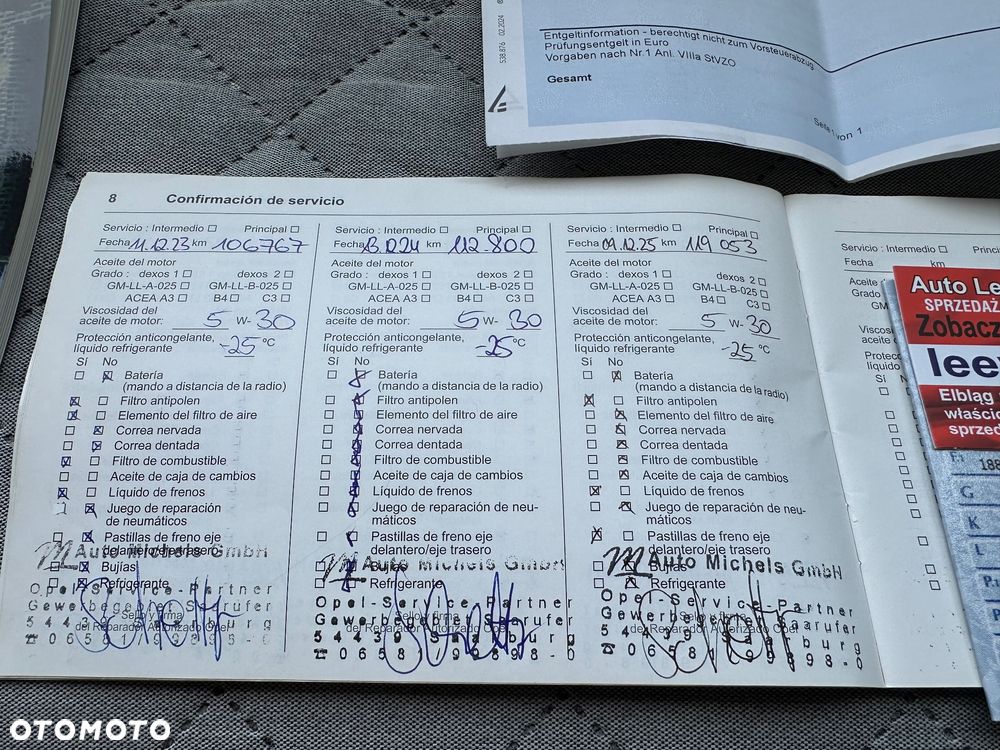 538.876 02.2024
Entgeltinformation - berechtigt nicht zum Vorsteuerabzug
Prüfungsentgelt in Euro
Vorgaben nach Nr.1 Anl. VIIIa StVZO
Gesamt
Seite 1 von 1
8 Confirmación de servicio
Servicio : Intermedio Principal
Fecha 11.12.23 km 106767
Aceite del motor
Grado : dexos 1 dexos 2
GM-LL-A-025 GM-LL-B-025
ACEA A3 B4 C3
Viscosidad del
aceite de motor: 5 W- 30
Protección anticongelante,
líquido refrigerante -25 °C
Sí No
Batería
(mando a distancia de la radio)
Filtro antipolen
Elemento del filtro de aire
Correa nervada
Correa dentada
Filtro de combustible
Aceite de caja de cambios
Líquido de frenos
Juego de reparación
de neumáticos
Pastillas de freno eje
delantero/eje trasero
Bujías
Refrigerante
Auto Michels GmbH
Opel-Service-Partner
Sello y firma
del Reparador Autorizado Opel
Servicio : Intermedio Principal
Fecha km 112.800
Aceite del motor
Grado : dexos 1 dexos 2
GM-LL-A-025 GM-LL-B-025
ACEA A3 B4 C3
Viscosidad del
aceite de motor: 5 W- 30
Protección anticongelante,
líquido refrigerante -25 °C
Sí No
Batería
(mando a distancia de la radio)
Filtro antipolen
Elemento del filtro de aire
Correa nervada
Correa dentada
Filtro de combustible
Aceite de caja de cambios
Líquido de frenos
Juego de reparación de neu-
máticos
Pastillas de freno eje
delantero/eje trasero
Bujías
Refrigerante
Auto Michels GmbH
Opel-Service-Partner
Sello y firma
del Reparador Autorizado Opel
Servicio : Intermedio Principal
Fecha 09.12.25 km 119 053
Aceite del motor
Grado : dexos 1 dexos 2
GM-LL-A-025 GM-LL-B-025
ACEA A3 B4 C3
Viscosidad del
aceite de motor: 5 W- 30
Protección anticongelante,
líquido refrigerante -25 °C
Sí No
Batería
(mando a distancia de la radio)
Filtro antipolen
Elemento del filtro de aire
Correa nervada
Correa dentada
Filtro de combustible
Aceite de caja de cambios
Líquido de frenos
Juego de reparación de neu-
máticos
Pastillas de freno eje
delantero/eje trasero
Bujías
Refrigerante
Auto Michels GmbH
Opel-Service-Partner
Sello y firma
del Reparador Autorizado Opel
Servicio : Intermedio
Fecha km
Aceite
Grado
GM
aceite
líquido
Sí No
Auto Le
SPRZEDAŻ
Zobacz
lee
Elbląg
właścic
sprzed
188
G
K
L
OTOMOTO